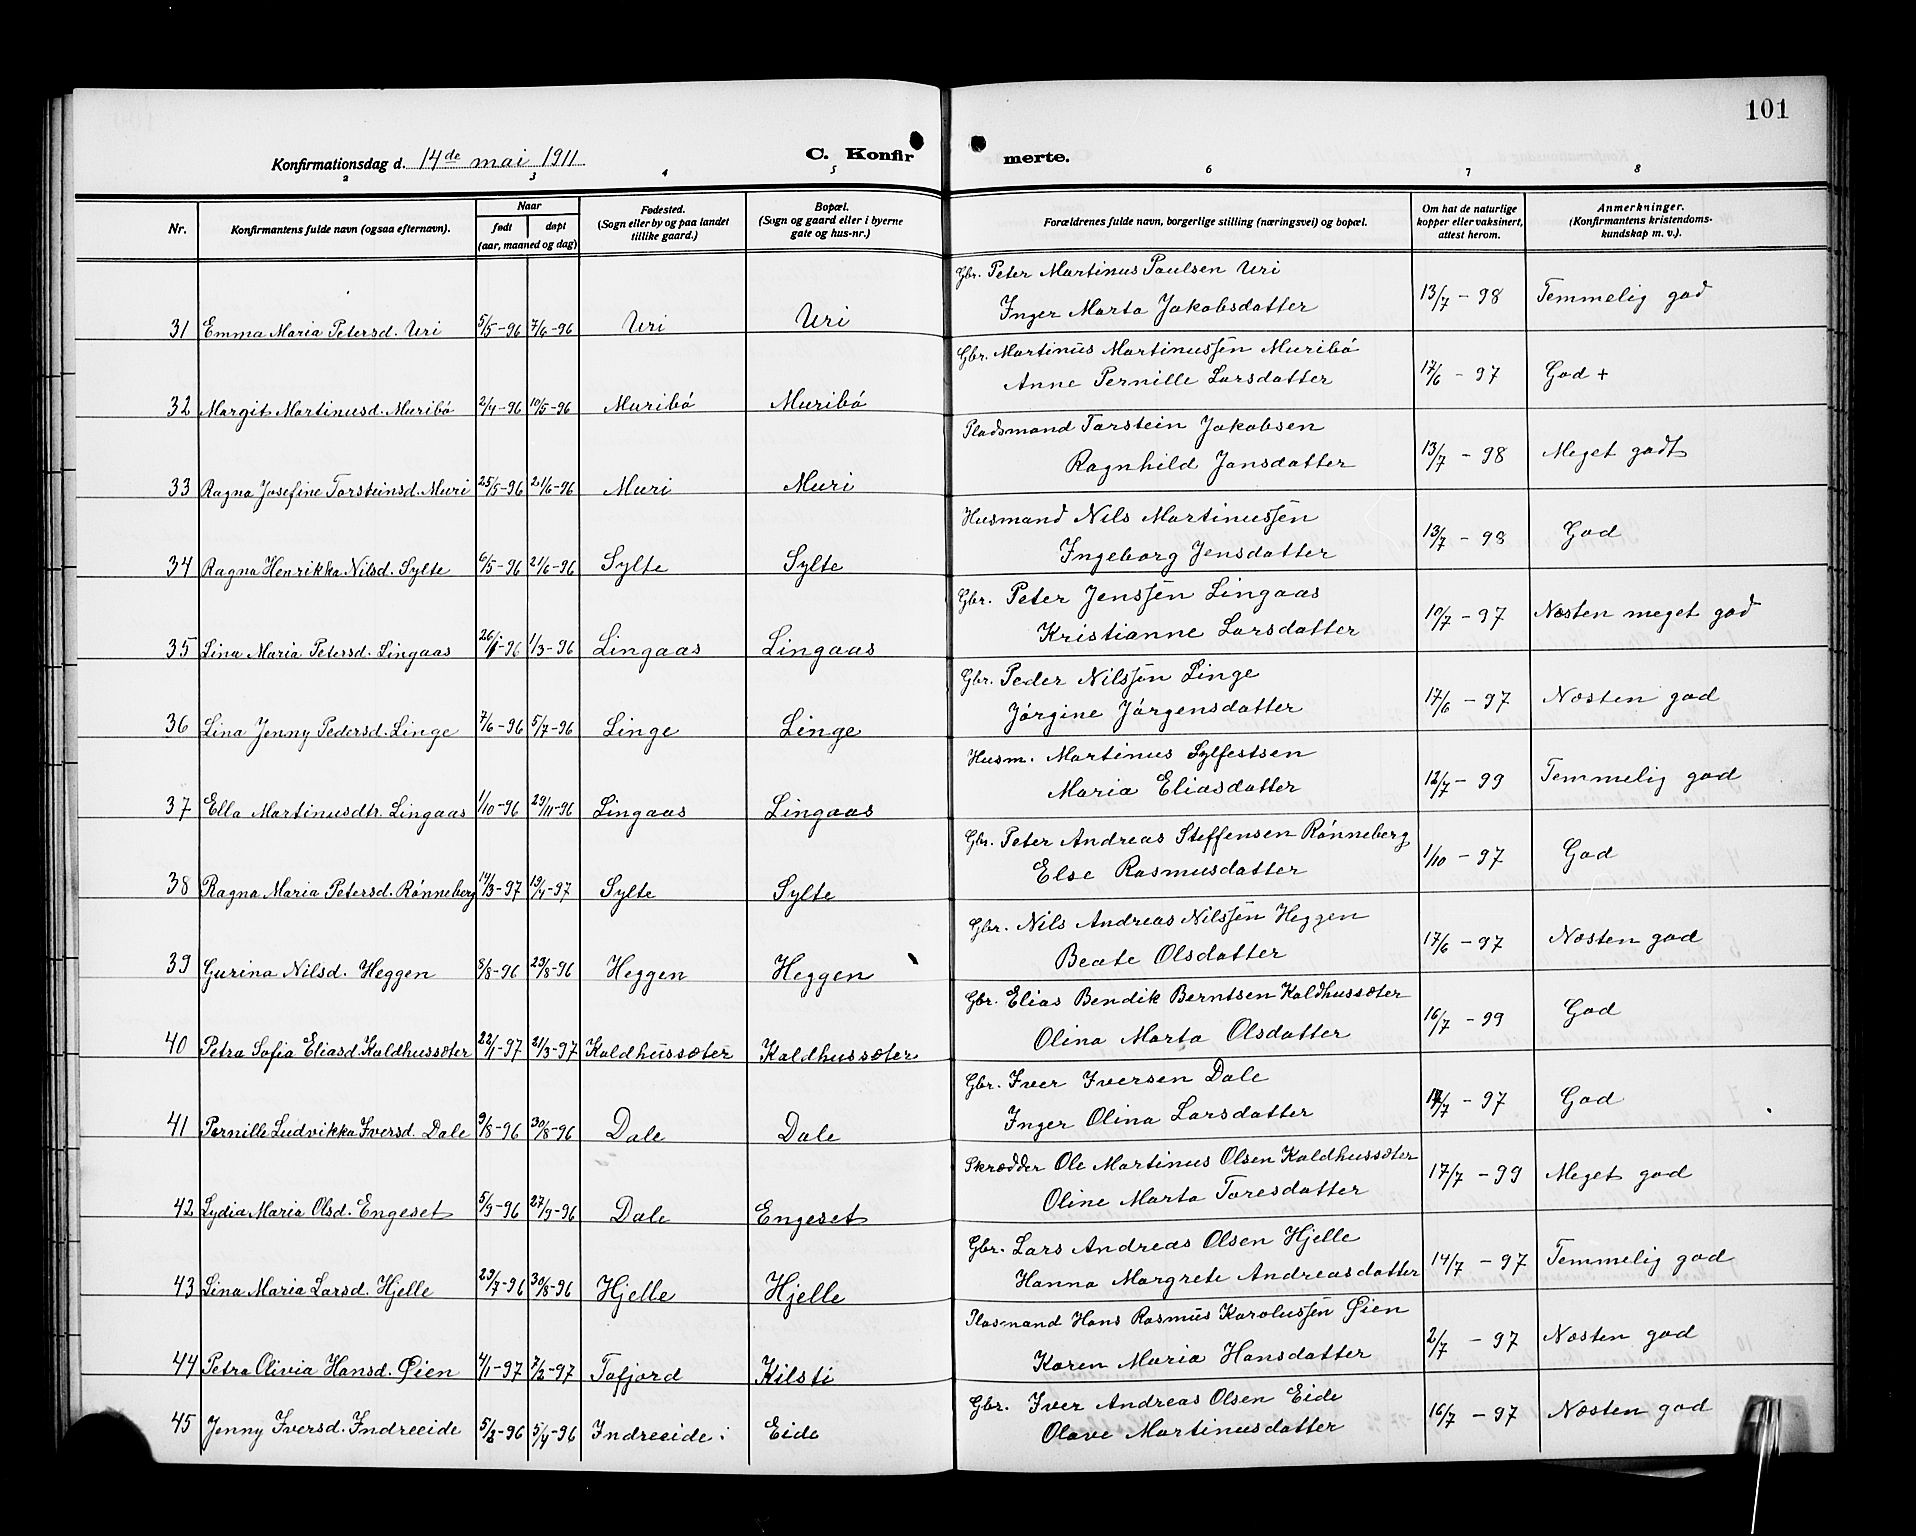 101
Konfirmationsdag d. 14de mai 1911 C. Konfirmerte.
2 3 4 5 6 7 8
Nr. Konfirmantens fulde navn (ogsaa efternavn). Naar født døpt (aar, maaned og dag) Fødested. (Sogn eller by og paa landet tillike gaard.) Bopæl. (Sogn og gaard eller i byerne gate og hus-nr.) Forældrenes fulde navn, borgerlige stilling (næringsvei) og bopæl. Om hat de naturlige kopper eller vaksinert, attest herom. Anmerkninger. (Konfirmantens kristendomskundskap m. v.).
Gbr. Peter Martinus Paulsen Uri
31 Emma Maria Petersd. Uri 5/5-96 7/6-96 Uri Uri Inger Marta Jakobsdatter 13/7 - 98 Temmelig god
Gbr. Martinus Martinussen Muribø
32 Margit Martinusd. Muribø 2/4-96 10/5-96 Muribø Muribø Anne Pernille Larsdatter 17/6 - 97 God +
Pladsmand Torstein Jakobsen
33 Ragna Josefine Torsteinsd. Muri 25/5-96 21/6-96 Muri Muri Ragnhild Jonsdatter 13/7 - 98 Meget godt
Husmand Nils Martinussen
34 Ragna Henrikka Nilsd. Sylte 6/5-96 21/6-96 Sylte Sylte Ingeborg Jensdatter 13/7 - 98 God
Gbr. Peter Jenssen Lingaas
35 Lina Maria Petersd. Lingaas 26/1-96 1/3-96 Lingaas Lingaas Kristianne Larsdatter 10/7 - 97 Næsten meget god
Gbr. Peder Nilssen Linge
36 Lina Jenny Pedersd. Linge 7/6-96 5/7-96 Linge Linge Jørgine Jørgensdatter 17/6 - 97 Næsten god
Husm. Martinus Sylfestsen
37 Ella Martinusdtr. Lingaas 1/10-96 29/11-96 Lingaas Lingaas Maria Eliasdatter 12/7 - 99 Temmelig god
Gbr. Peter Andreas Steffensen Rønneberg
38 Ragna Maria Petersd. Rønneberg 14/3-97 19/4-97 Sylte Sylte Else Rasmusdatter 1/10 - 97 God
Gbr. Nils Andreas Nilssen Heggen
39 Gurina Nilsd. Heggen 8/8-96 23/8-96 Heggen Heggen Beate Olsdatter 17/6 - 97 Næsten god
Gbr. Elias Bendik Berntsen Kaldhussæter
40 Petra Sofia Eliasd. Kaldhussæter 22/1-97 21/3-97 Kaldhussæter Kaldhussæter Olina Marta Olsdatter 16/7 - 99 God
Gbr. Iver Iversen Dale
41 Pernille Ludvikka Iversd. Dale 9/8-96 30/8-96 Dale Dale Inger Olina Larsdatter /7 - 97 God
Skrædder Ole Martinus Olsen Kaldhussæter
42 Lydia Maria Olsd. Engeset 5/9-96 27/9-96 Dale Engeset Oline Marta Toresdatter 17/7 - 99 Meget god
Gbr. Lars Andreas Olsen Hjelle
43 Lina Maria Larsd. Hjelle 29/7-96 30/8-96 Hjelle Hjelle Hanna Margrete Andreasdatter 14/7 - 97 Temmelig god
Plasmand Hans Rasmus Karolussen Øien
44 Petra Olivia Hansd. Øien 4/1-97 7/2-97 Tafjord Kilsti Karen Maria Hansdatter 2/7 - 97 Næsten god
Gbr. Iver Andreas Olsen Eide
45 Jenny Iversd. Indreeide 5/2-96 5/4-96 Indreeide Eide Olave Martinusdatter 16/7 - 97 Næsten god